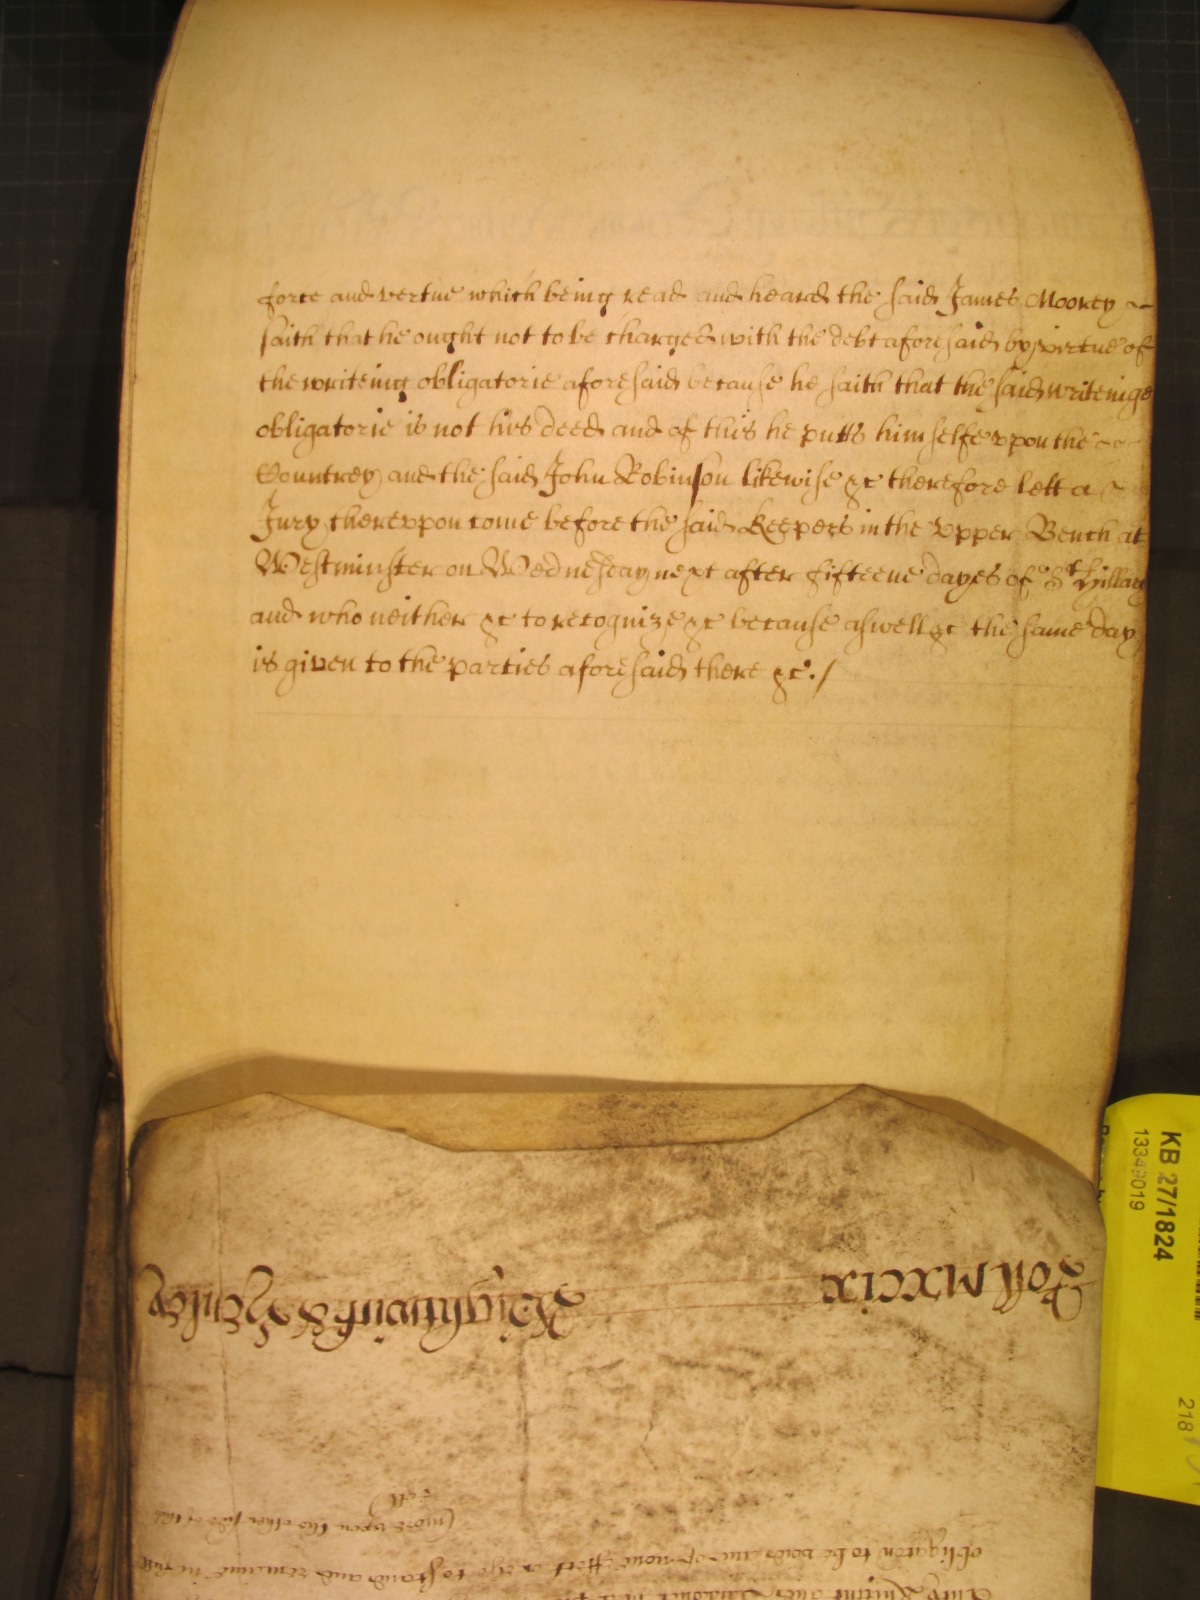 force and vertue which being read and heard the said James Moorey
saith that he ought not to be charged with the debt aforesaid by vertue of
the writeing obligatorie aforesaid because he saith that the said writeinge
obligatorie is not his deed and of this he putts himselfe vpon the
Countrey and the said John Robinson likewise &c therefore lett a
Jury therevpon come before the said Keepers in the vpper Bench at
Westminster on Wednesday next after fifteene dayes of St Hillary
and who neither &c to recognize &c because aswell &c the same day
is given to the parties aforesaid there &c./
Roll Mxxcix
Wightwick & Henley
obligacon to be void and of none effect or else to stand and remaine in full
(more vpon the other side of this
roll)
KB 27/1824
13349019
218